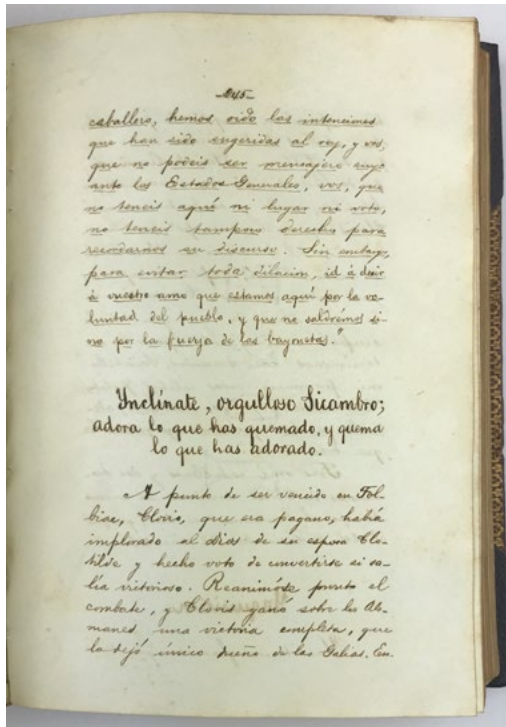 -245-
caballero, hemos oido las intenciones
que han sido sugeridas al rey, y vos,
que no podeis ser mensajero suyo
ante los Estados Generales, vos, que
no teneis aquí ni lugar ni voto,
no teneis tampoco derecho para
recordarnos su discurso. Sin embargo,
para evitar toda dilacion, id á decir
á vuestro amo que estamos aquí por la vo-
luntad del pueblo, y que no saldrémos si-
no por la fuerza de las bayonetas."
Ynclínate, orgulloso Sicambro;
adora lo que has quemado, y quema
lo que has adorado.
A punto de ser vencido en Tol-
biac, Clovis, que era pagano, había
implorado al dios de su esposa Clo-
tilde y hecho voto de convertirse si sa-
lía victorioso. Reanimóse pronto el
combate, y Clovis ganó sobre los Ale-
manes una victoria completa, que
le dejó único dueño de las Galias. En